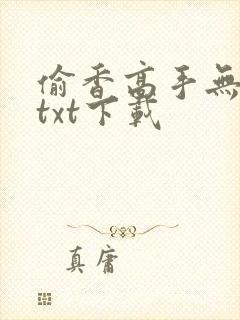 偷香高手無
txt下載
真庸